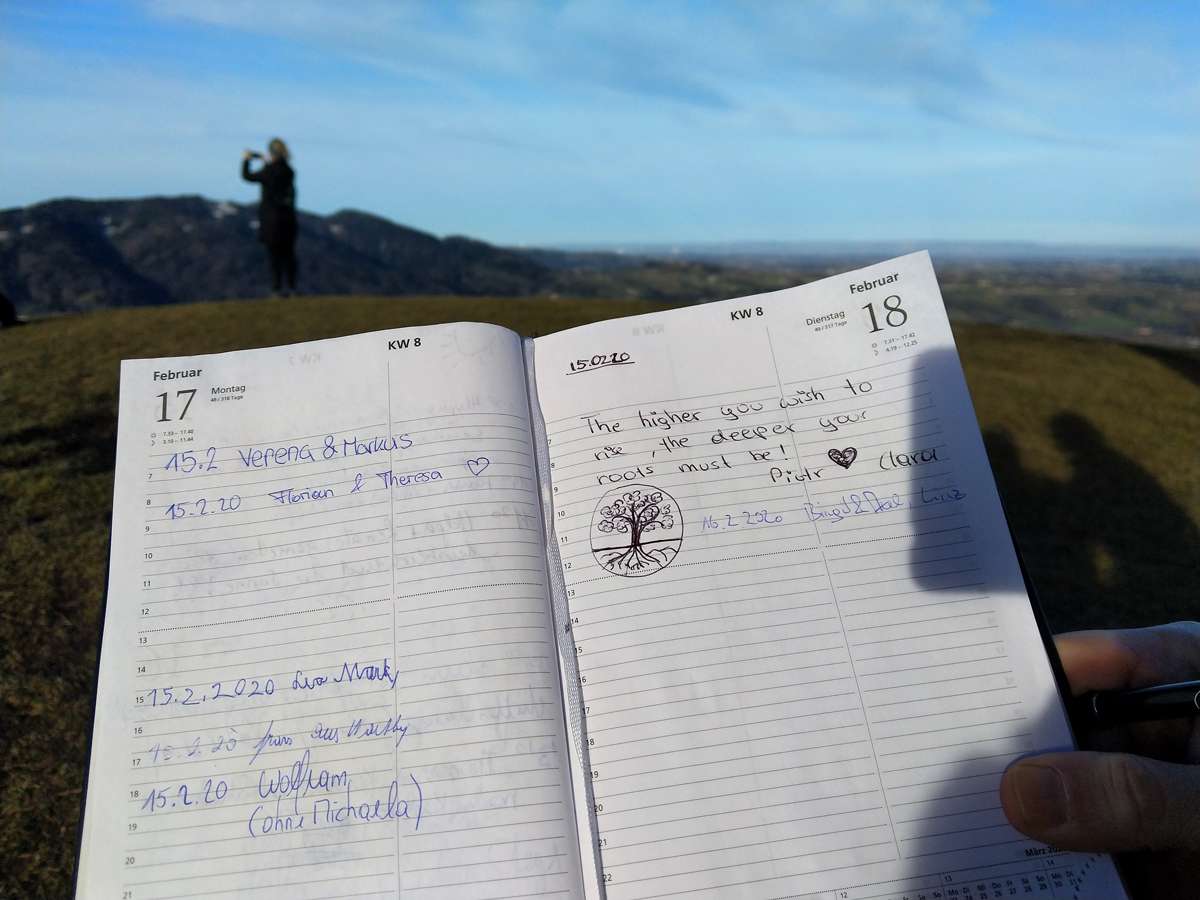 KW 8
Februar
17 Montag
48 / 318 Tage
7.33 – 17.40
3.10 – 11.44
7
15.2 Verena & Markus
8
15.2.20 Florian & Theresa ♡
9
10
11
12
13
14
15
15.2.2020
16
17
18
15.2.20 Wolfram
(ohne Michaela)
19
20
21
KW 8
Februar
Dienstag 18
49 / 317 Tage
7.31 – 17.42
4.19 – 12.25
15.0220
7
The higher you wish to
8
rise, the deeper your
roots must be!
9
Piotr ♥ Clara
10
16.2.2020 Linz
11
12
13
14
15
16
17
18
19
20
22
März